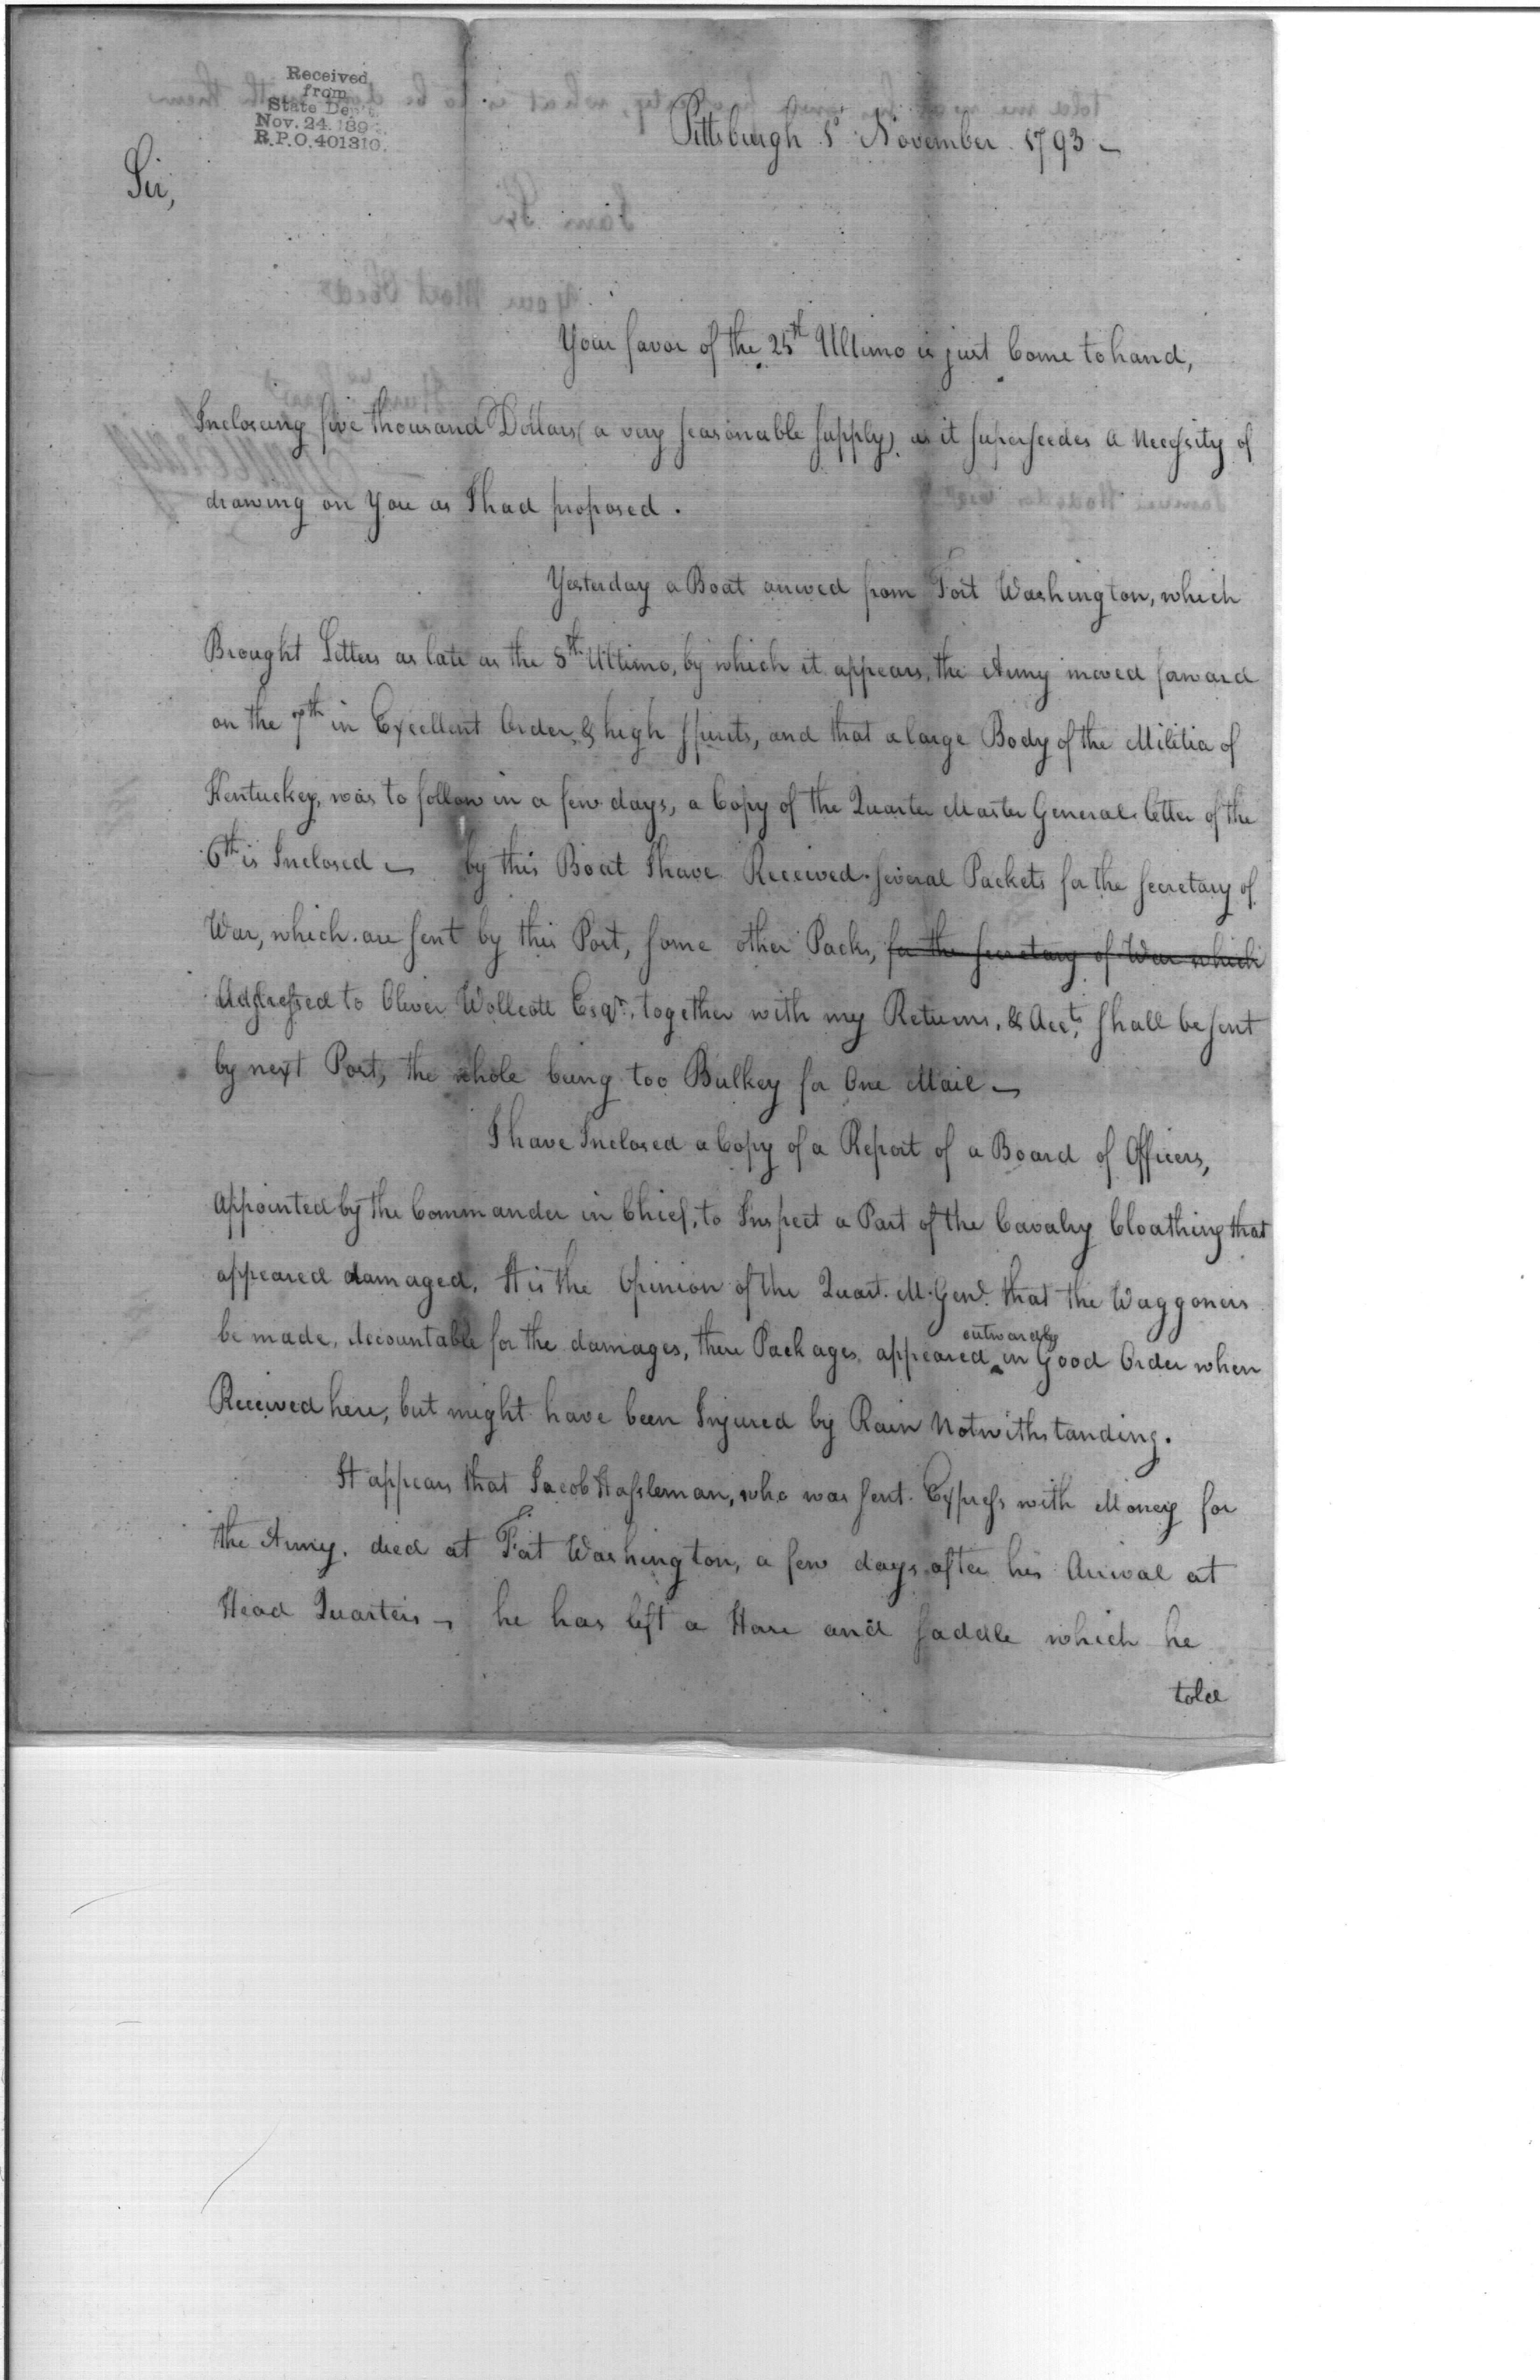 Received
from
State Dep't.
Nov. 24. 189
R.P.O. 401310.
Pittsburgh 1st November 1793 –
Sir,
Your favor of the 25th Ultimo is just Come to hand,
Inclosing five thousand Dollars (a very seasonable supply) as it superseedes a Necessity of
drawing on You as I had proposed.
Yesterday a Boat arrived from Fort Washington, which
Brought Letters as late as the 8th Ultimo, by which it appears, the Army moved forward
on the 7th in Excellent Order & high Spirits, and that a large Body of the Militia of
Kentuckey, was to follow in a few days, a Copy of the Quarter Master Generals letter of the
6th is Inclosed – by this Boat I have Received several Packets for the Secretary of
War, which are sent by this Post, some other Packs, for the Secretary of War which
Addressed to Oliver Wollcott Esqr. together with my Returns, & Acc.ts shall be sent
by next Post, the whole being too Bulkey for One Mail –
I have Inclosed a Copy of a Report of a Board of Officers,
appointed by the Commander in Chief, to Inspect a Part of the Cavalry Cloathing that
appeared damaged. It is the Opinion of the Quart. M. Genl. that the Waggoners
be made, Accountable for the damages, these Packages, appeared outwardly in Good Order when
Received here, but might have been Injured by Rain Notwithstanding.
It appears that Jacob Hassleman, who was sent Express with Money for
the Army, died at Fort Washington, a few days after his Arrival at
Head Quarters – he has left a Horse and Saddle which he
told